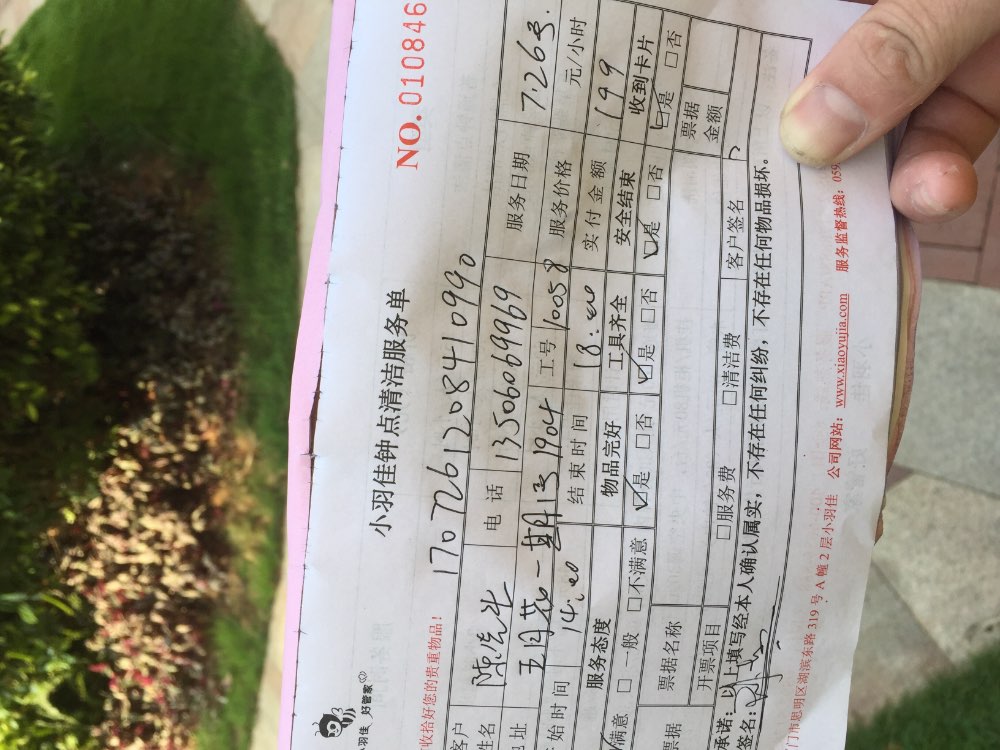 NO. 010846
小羽佳 好管家
小羽佳钟点清洁服务单
收拾好您的贵重物品!
170726120841099০
客户
姓名 电话 13506069969 服务日期 7.26号.
地址 五月花一期13号1904 工号 10058 服务价格 元/小时
始时间 14:00 结束时间 18:00 实付金额 199
服务态度 物品完好 工具齐全 安全结束 收到卡片
满意 □一般 □不满意 ☑是 □否 ☑是 □否 ☑是 □否 ☑是 □否
票据 票据名称 票据金额
开票项目 □服务费 □清洁费 客户签名
承诺:以上填写经本人确认属实,不存在任何纠纷,不存在任何物品损坏。
签名:
门市思明区湖滨东路 319 号 A 幢 2 层小羽佳 公司网站:www.xiaoyujia.com 服务监督热线:059